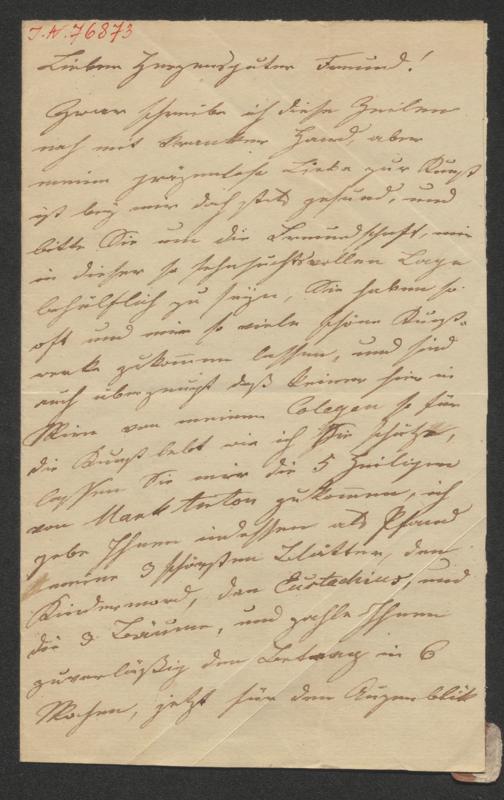 I.N. 76873
Lieber Herzensguter Freund!
Zwar schreibe ich diese Zeilen
noch mit kranker Hand, aber
meine Liebe zur Kunst
ist bey mir doch stets gesund, und
bitte Sie um die Freundschaft, mir
in dieser so sehnsuchtsvollen Lage
behülflich zu seyn, Sie haben so
oft und mir so viele schöne Kunst-
werke zukommen lassen, und sind
auch überzeugt daß keiner hier in
Wien von meinen Colegen so für
die Kunst lebt wie ich Sie schätze,
lassen Sie mir die 5 Heiligen
von Mark Anton zukommen, ich
gebe Ihnen indessen als Pfand
meine 3 schönsten Blätter, den
Kindermord, den Eustachius, und
die 3 Bäume, und zahle Ihnen
zuverläßig den Betrag in 6
Wochen, jetzt für den Augenblick